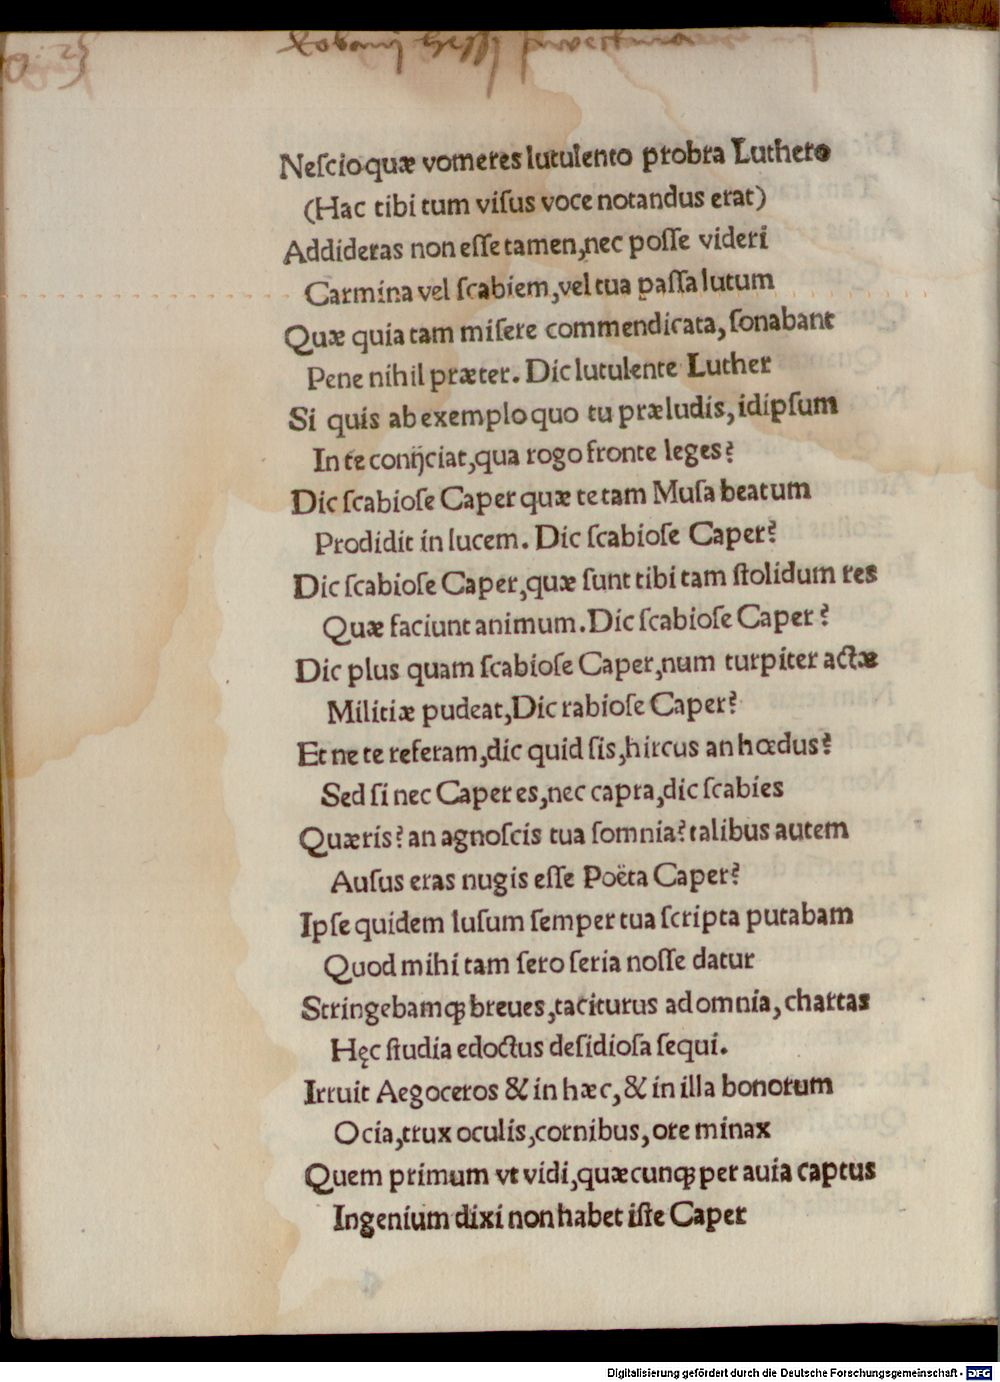 Eobanj Hessj
Neſcio quæ vomeres lutulento probra Luthero
(Hac tibi tum viſus voce notandus erat)
Addideras non eſſe tamen,nec poſſe videri
Carmina vel ſcabiem,vel tua paſſa lutum
Quæ quia tam miſere commendicata, ſonabant
Pene nihil præter. Dic lutulente Luther
Si quis ab exemplo quo tu præludis, idipſum
In te conĳciat,qua rogo fronte leges?
Dic ſcabioſe Caper quæ te tam Muſa beatum
Prodidit in lucem. Dic ſcabioſe Caper?
Dic ſcabioſe Caper,quæ ſunt tibi tam ſtolidum res
Quæ faciunt animum.Dic ſcabioſe Caper?
Dic plus quam ſcabioſe Caper,num turpiter actæ
Militiæ pudeat,Dic rabioſe Caper?
Et ne te referam,dic quid ſis,hircus an hœdus?
Sed ſi nec Caper es,nec capra,dic ſcabies
Quæris? an agnoſcis tua ſomnia? talibus autem
Auſus eras nugis eſſe Poëta Caper?
Ipſe quidem luſum ſemper tua ſcripta putabam
Quod mihi tam ſero ſeria noſſe datur
Stringebamꝗ breues,taciturus ad omnia, chartas
Hęc ſtudia edoctus deſidioſa ſequi.
Irruit Aegoceros & in hæc,& in illa bonorum
Ocia,trux oculis,cornibus,ore minax
Quem primum vt vidi,quæcunꝗ per auia captus
Ingenium dixi non habet iſte Caper
Digitalisierung gefördert durch die Deutsche Forschungsgemeinschaft - DFG